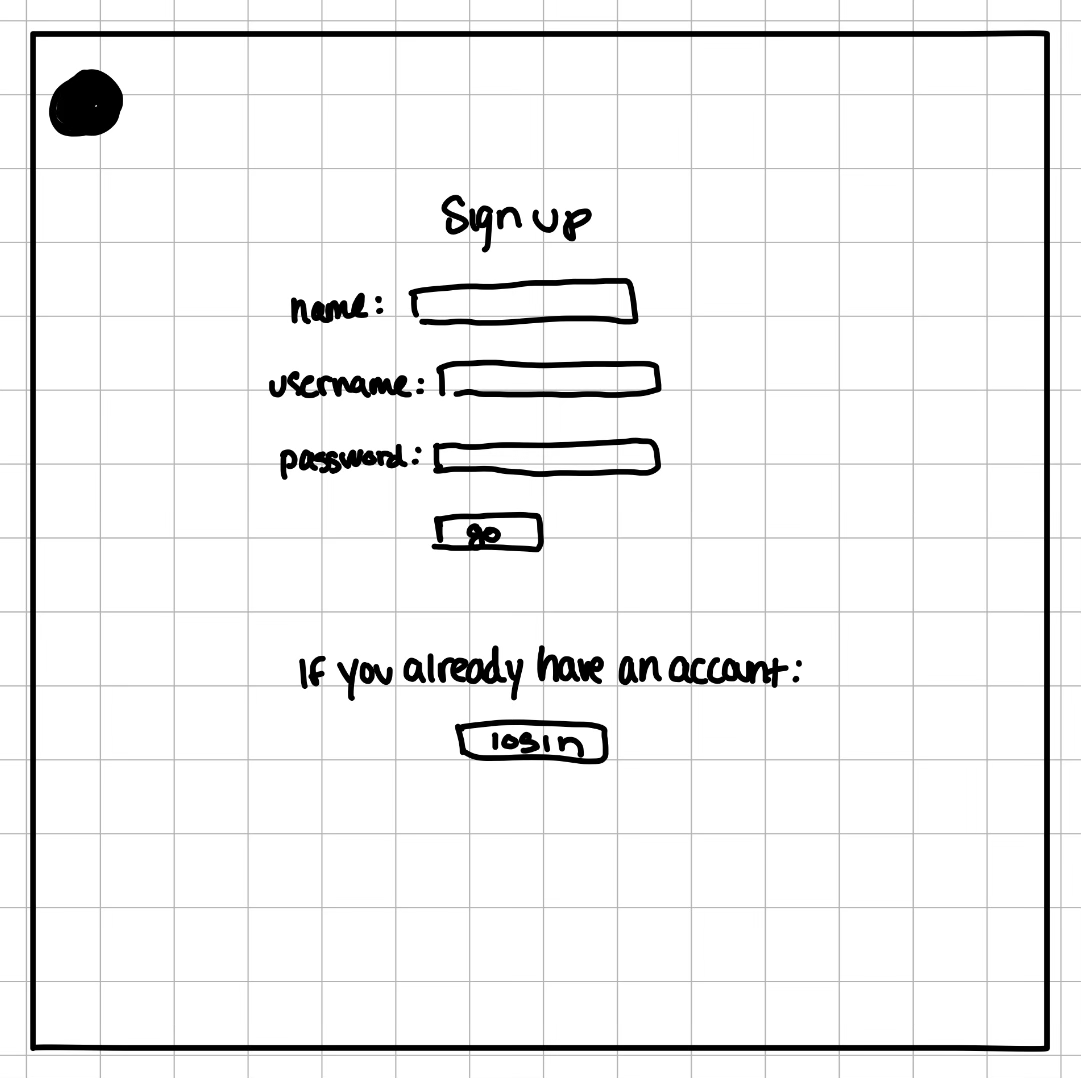 Sign up
name:
username:
password:
go
If you already have an account:
login